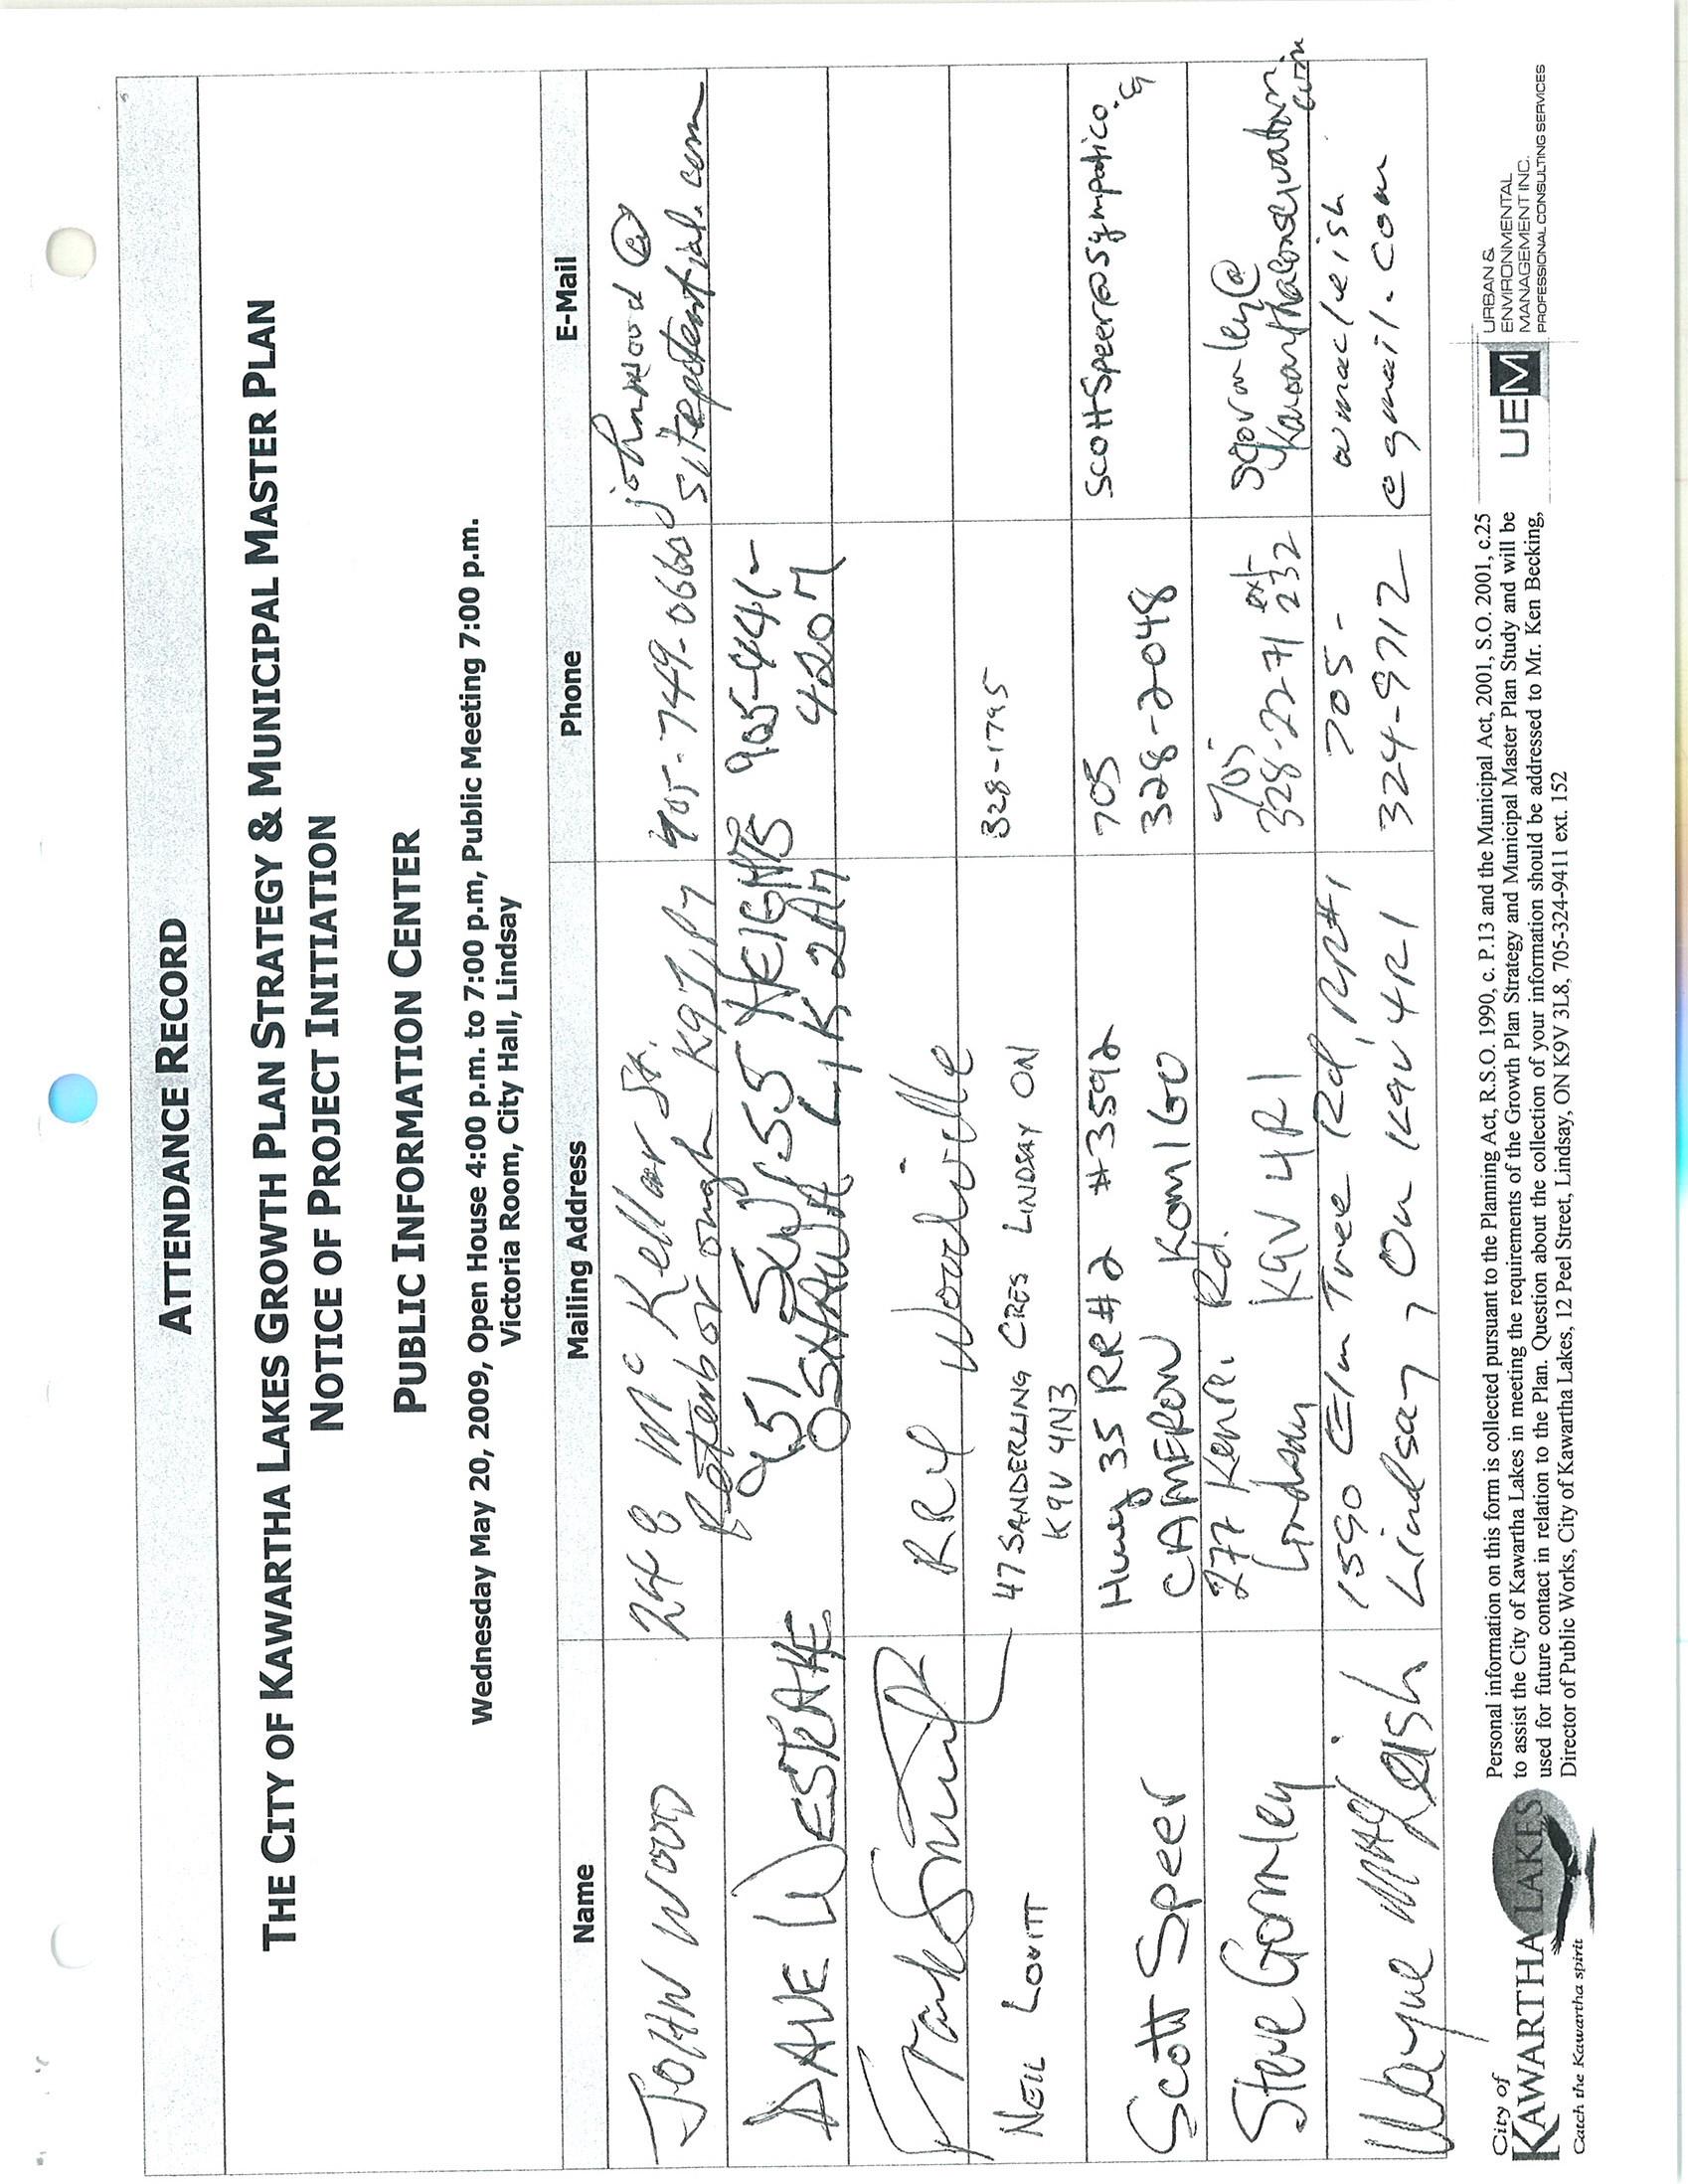 ATTENDANCE RECORD
THE CITY OF KAWARTHA LAKES GROWTH PLAN STRATEGY & MUNICIPAL MASTER PLAN
NOTICE OF PROJECT INITIATION
PUBLIC INFORMATION CENTER
Wednesday May 20, 2009, Open House 4:00 p.m. to 7:00 p.m, Public Meeting 7:00 p.m.
Victoria Room, City Hall, Lindsay
Name Mailing Address Phone E-Mail
JOHN WOOD 248 McKellar St. 705-749-0660 johnwood@
Peterborough K9J 1P7 sitepotential.com
DAVE WESTLAKE 951 HEIGHTS 905-441-
OSHAWA L1K 2A7 4207
RR4 Woodville
NEIL LOVITT 47 SANDERLING CRES LINDSAY ON 328-1795
K9V 4N3
Scott Speer Hwy 35 RR#2 #3592 705 scottspeer@sympatico.ca
CAMERON K0M 1G0 328-2048
Steve Gormley 277 Kenrei Rd. 705 sgormley@
Lindsay K9V 4R1 328-2271 ext 232 kawarthaconservation.com
Wayne MacLeish 1590 Elm Tree Rd, RR#1 705- wmacleish
Lindsay, On K9V 4R1 324-9712 @gmail.com
City of
KAWARTHA LAKES
Catch the Kawartha spirit
Personal information on this form is collected pursuant to the Planning Act, R.S.O. 1990, c. P.13 and the Municipal Act, 2001, S.O. 2001, c.25
to assist the City of Kawartha Lakes in meeting the requirements of the Growth Plan Strategy and Municipal Master Plan Study and will be
used for future contact in relation to the Plan. Question about the collection of your information should be addressed to Mr. Ken Becking,
Director of Public Works, City of Kawartha Lakes, 12 Peel Street, Lindsay, ON K9V 3L8, 705-324-9411 ext. 152
UEM
URBAN &
ENVIRONMENTAL
MANAGEMENT INC.
PROFESSIONAL CONSULTING SERVICES